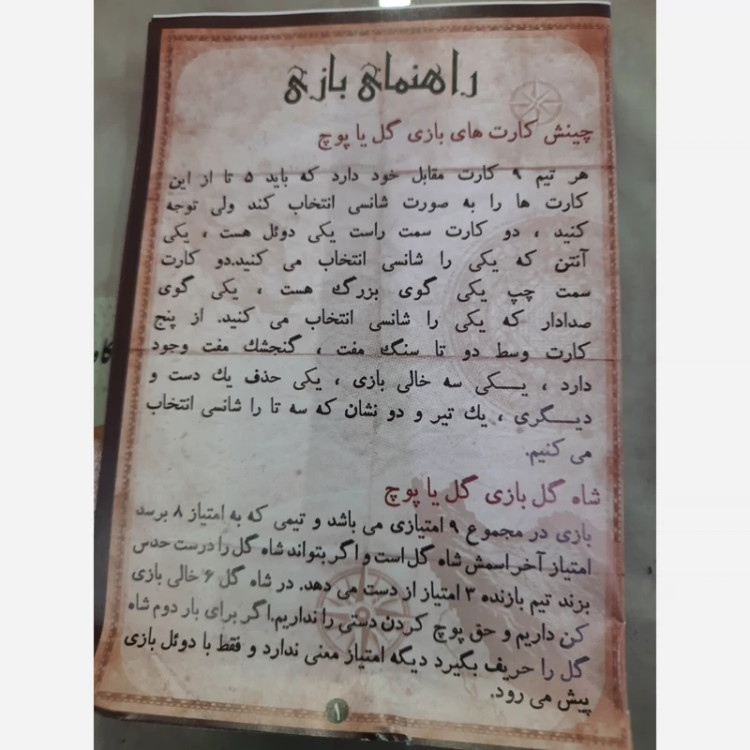 راهنمای بازی
چینش کارت های بازی گل یا پوچ
هر تیم ۹ کارت مقابل خود دارد که باید ۵ تا از این
کارت ها را به صورت شانسی انتخاب کند ولی توجه
کنید ، دو کارت سمت راست یکی دوئل هست ، یکی
آنتن که یکی را شانسی انتخاب می کنید.دو کارت
سمت چپ یکی گوی بزرگ هست ، یکی گوی
صدادار که یکی را شانسی انتخاب می کنید. از پنج
کارت وسط دو تا سنگ مفت ، گنجشك مفت وجود
دارد ، یـــکی سه خالی بازی ، یکی حذف یك دست و
دیـــگری ، یك تیر و دو نشان که سه تا را شانسی انتخاب
می کنیم.
شاه گل بازی گل یا پوچ
بازی در مجموع ۹ امتیازی می باشد و تیمی که به امتیاز ۸ برسد
امتیاز آخر اسمش شاه گل است و اگر بتواند شاه گل را درست حدس
بزند تیم بازنده ۳ امتیاز از دست می دهد. در شاه گل ۶ خالی بازی
کن داریم و حق پوچ کردن دستی را نداریم.اگر برای بار دوم شاه
گل را حریف بگیرد دیگه امتیاز معنی ندارد و فقط با دوئل بازی
پیش می رود.
۱